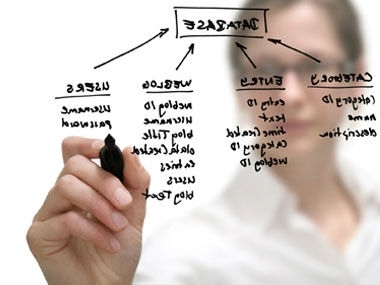 DATABASE
USERS
username
password
WEBLOG
weblog ID
username
blog Title
dateCreated
Entries
users
blog Text
ENTRY
entry ID
text
timeCreated
Category ID
Weblog ID
CATEGORY
Category ID
name
description